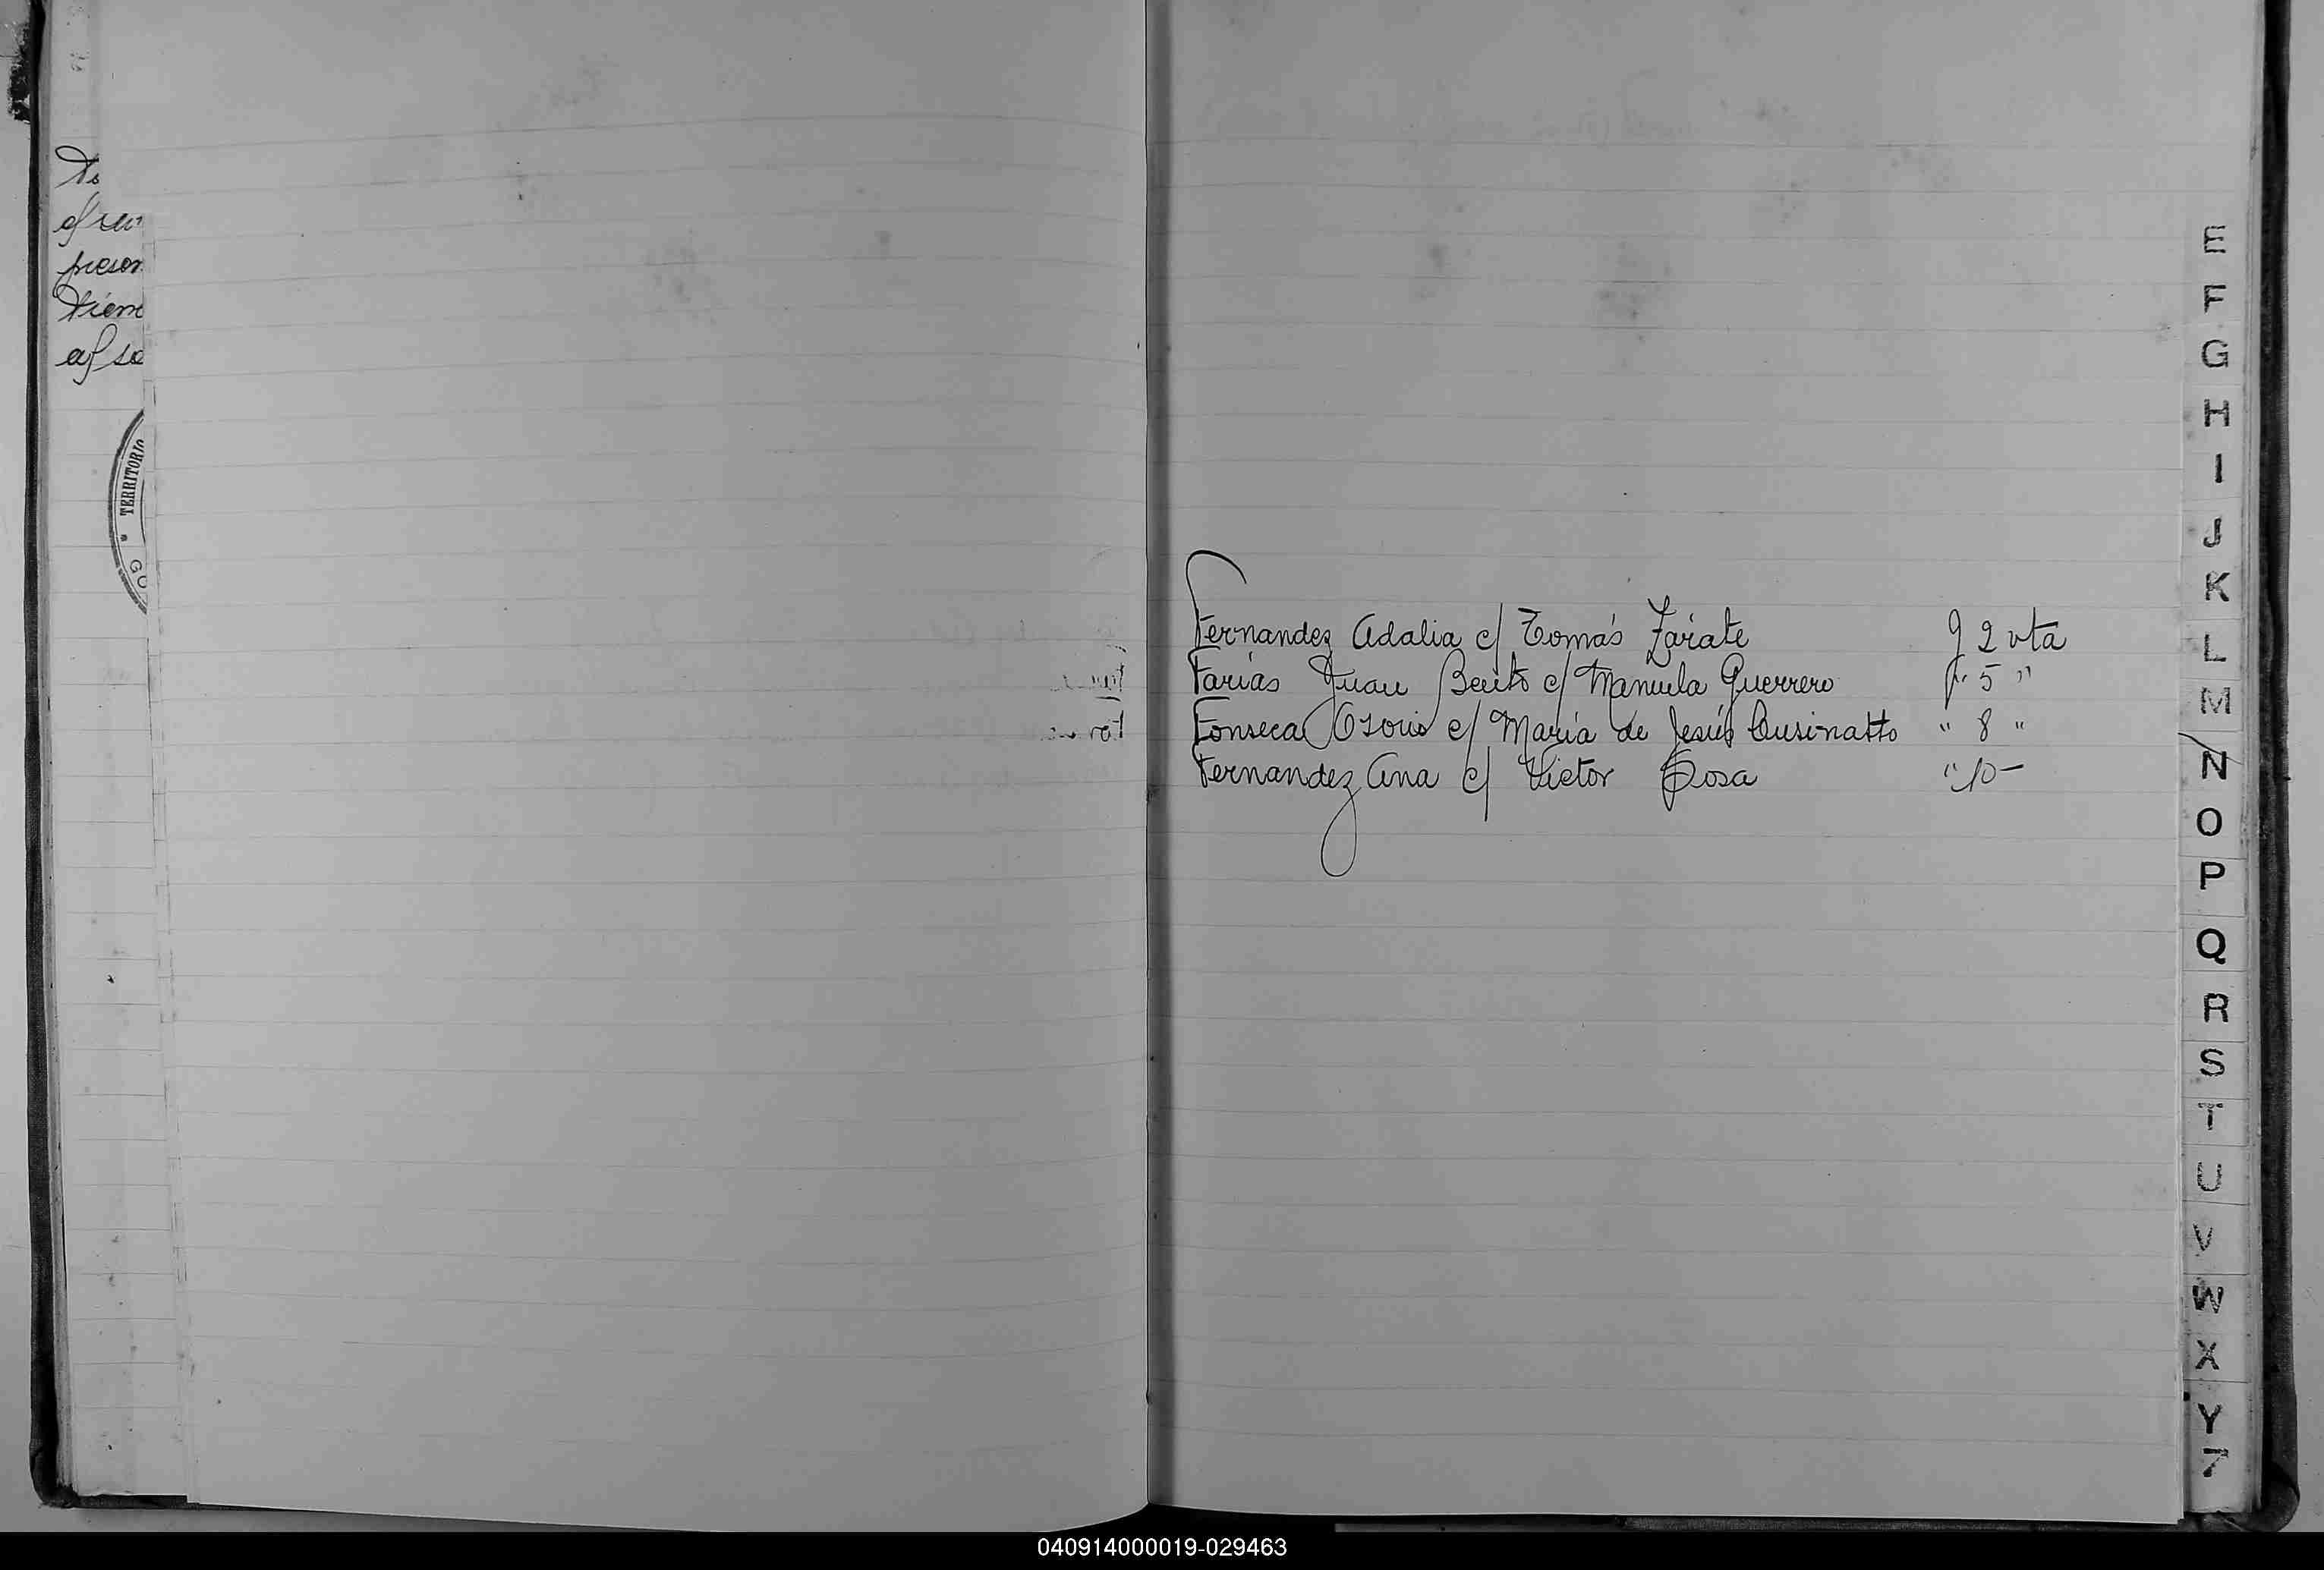 to
presen
tiem
TERRITORIO
GO
Fernandez Adalia c/ Tomás Zárate 2 vta
Farías Juan Benito c/ Manuela Guerrero " 5 "
Fonseca Osorio c/ María de Jesús Cusinatto " 8 "
Fernandez Ana c/ Victor Sosa " 10 -
E
F
G
H
I
J
K
L
M
N
O
P
Q
R
S
T
U
V
W
X
Y
Z
040914000019-029463